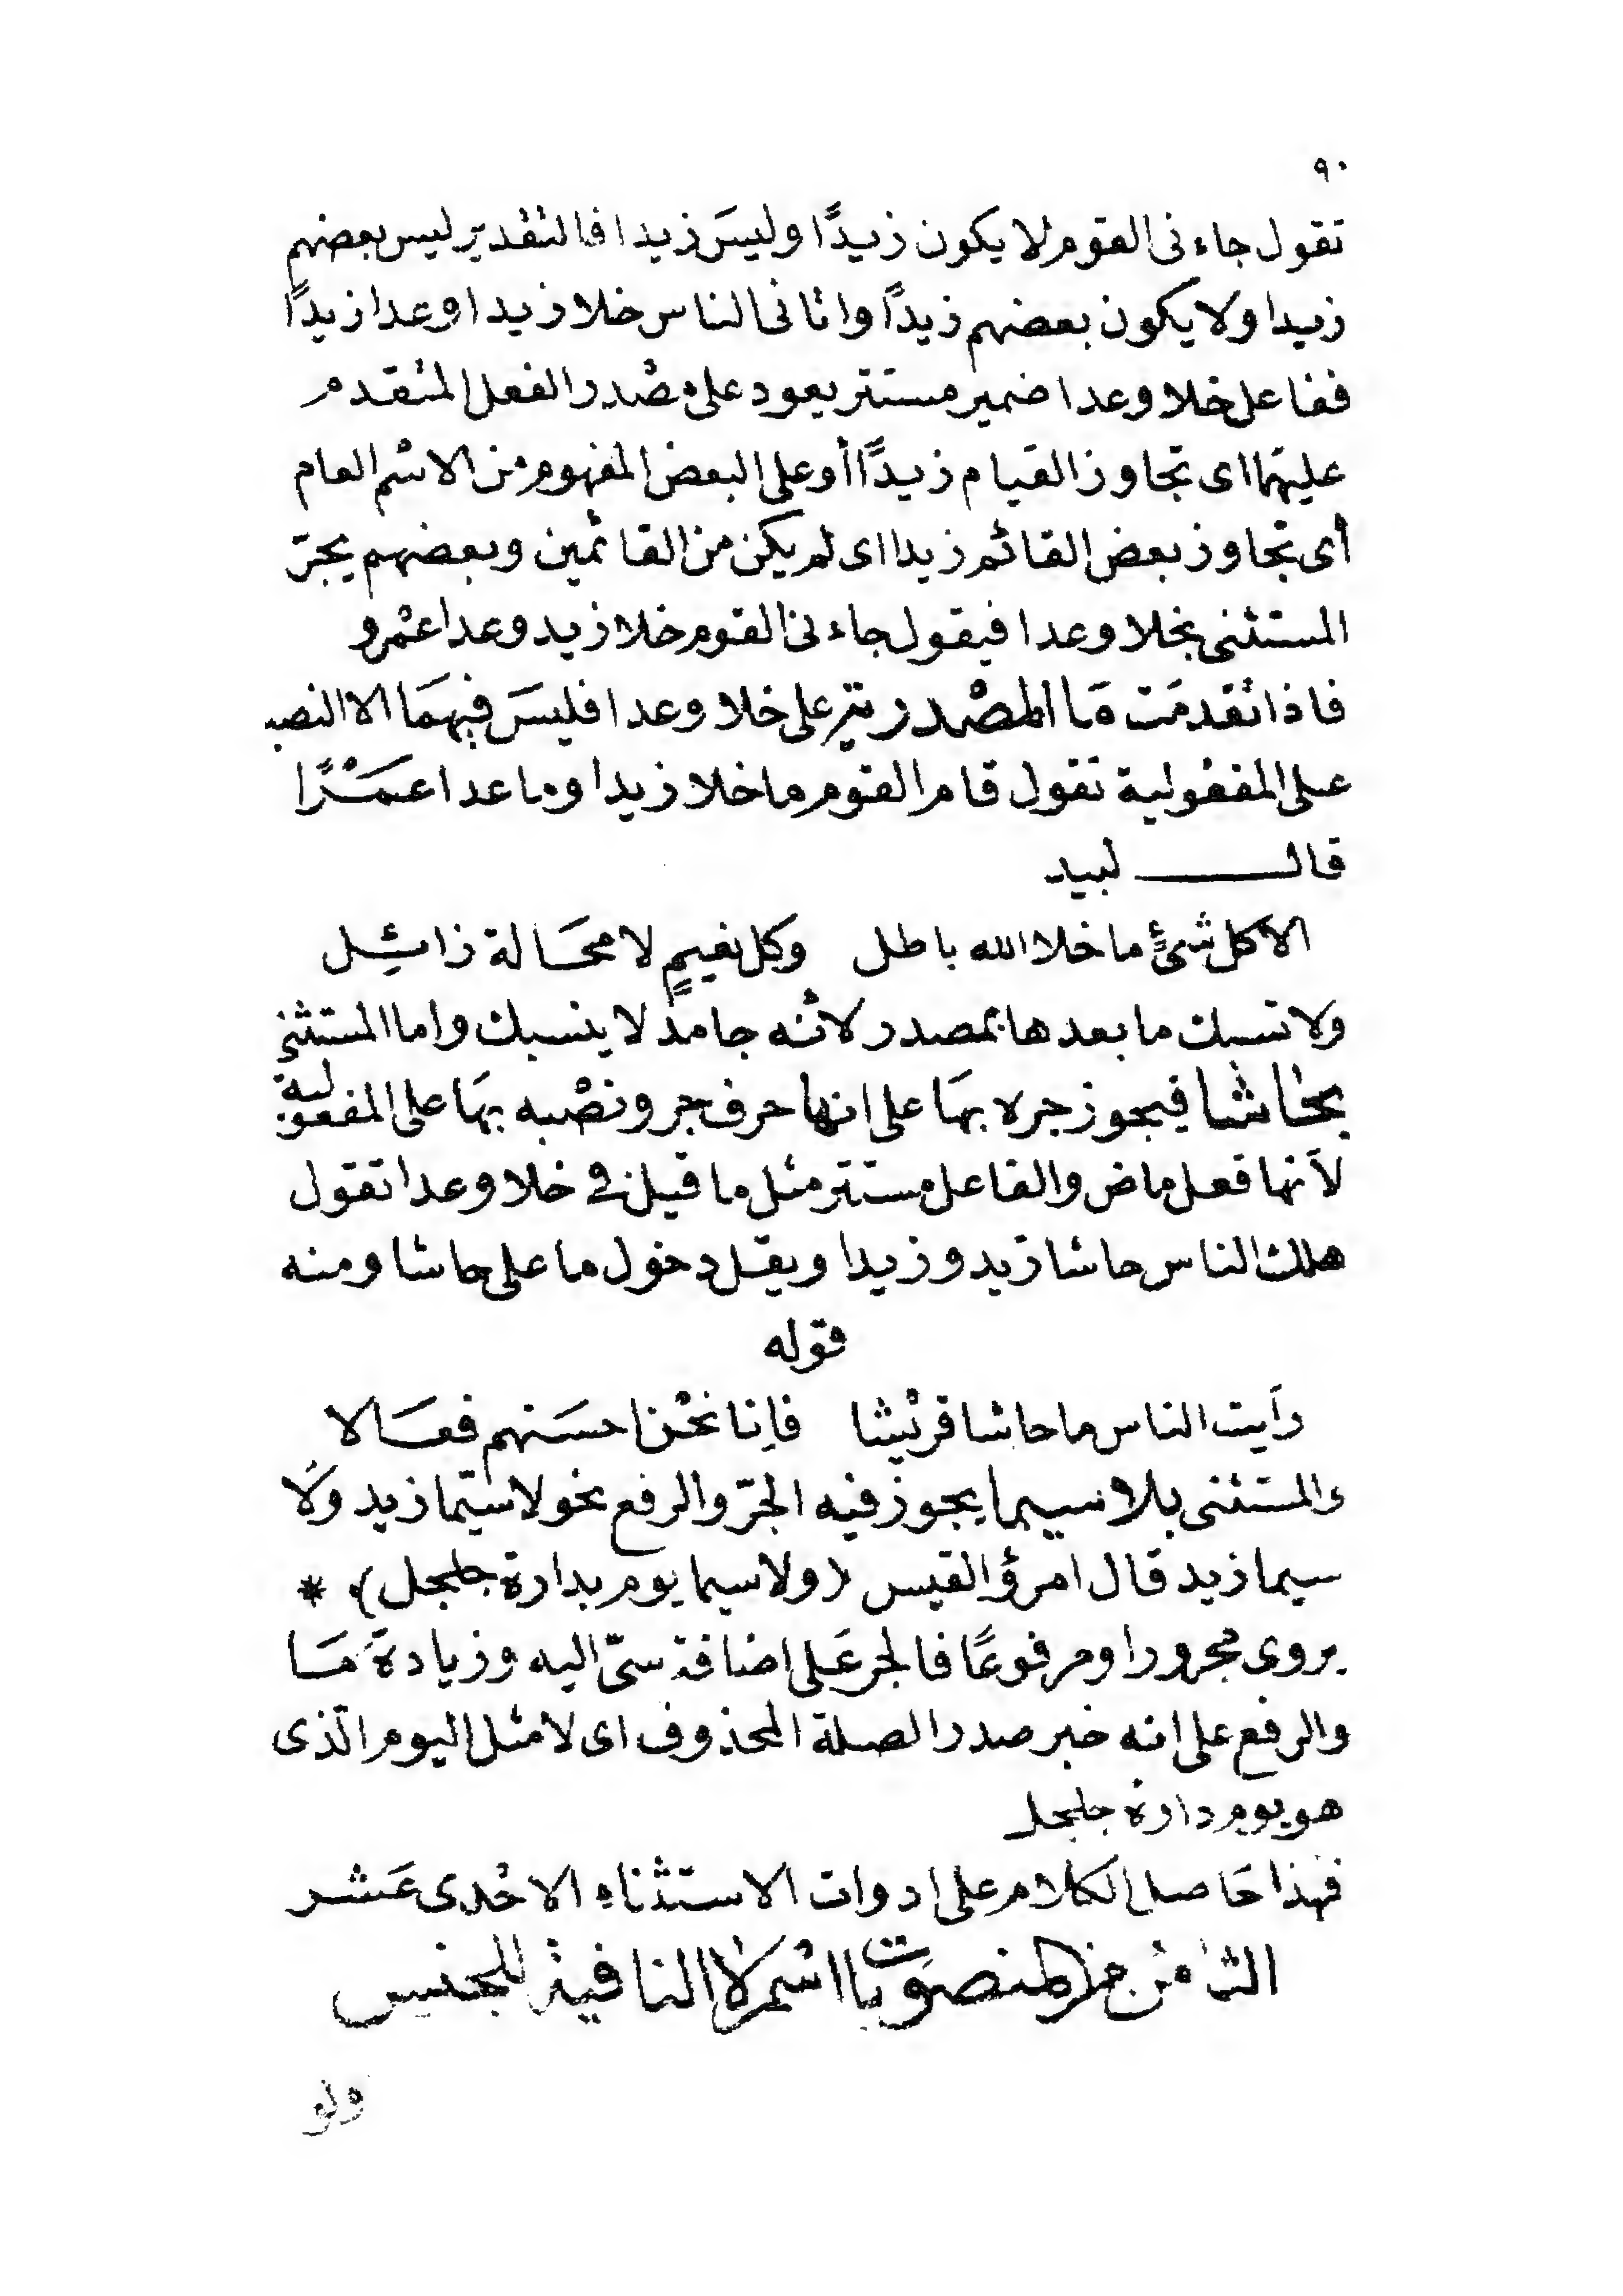 ٩٠
تقول جاءنى القوم لا يكون زيدًا وليسَ زيدا فالتقدير ليس بعضهم
زيدا ولا يكون بعضهم زيدًا واتانى الناس خلا زيدا وعدا زيدًا
ففاعل خلا وعدا ضمير مستتر يعود على مصْدر الفعل المتقدم
عليهما اى تجاوز القيام زيدًا أو على البعض المفهوم من الاسْم العام
أى تجاوز بعض القائم زيدا اى لم يكن من القائمين وبعضهم يجرّ
المستثنى بخلا وعدا فيقول جاءنى القوم خلا زيد وعدا عمْرو
فاذا تقدمَت مَا المصْدرية على خلا وعدا فليسَ فيهمَا الا النصب
على المفعولية تقول قام القوم ما خلا زيدا وما عدا عَمْرًا
قال لبيد
الا كل شئٍ ما خلا الله باطل وكل نعيمٍ لا محَالة زائِل
ولا تسبك ما بعدها بمصدر لانّه جامد لا ينسبك واما المستثنى
بحاشا فيجوز جره بهَا على انها حرف جر ونصْبه بهَا على المفعولية
لأنها فعل ماض والفاعل مستتر مثل ما قيل في خلا وعدا تقول
هلك الناس حاشا زيد وزيدا ويقل دخول ما على حاشا ومنه
قوله
رأيت الناس ما حاشا قريْشا فإنا نحْن احسَنهم فعَالا
والمستثنى بلا سيما يجوز فيه الجرّ والرفع نحو لا سيّما زيد ولَا
سيما زيد قال امرؤ القيس (ولا سيما يوم بدارة جلجل) *
يروى مجرورا ومرفوعًا فالجر عَلى اضافة سىّ اليه وزيادة مَا
والرفع على انه خبر صدر الصلة المحذوف اى لا مثل اليوم الّذى
هو يوم دارة جلجل
فهذا حَاصل الكلام على ادوات الاستثناء الاحْدى عَشر
الثامن من المنصوبات اسْم لا النافية للجنس
ولو